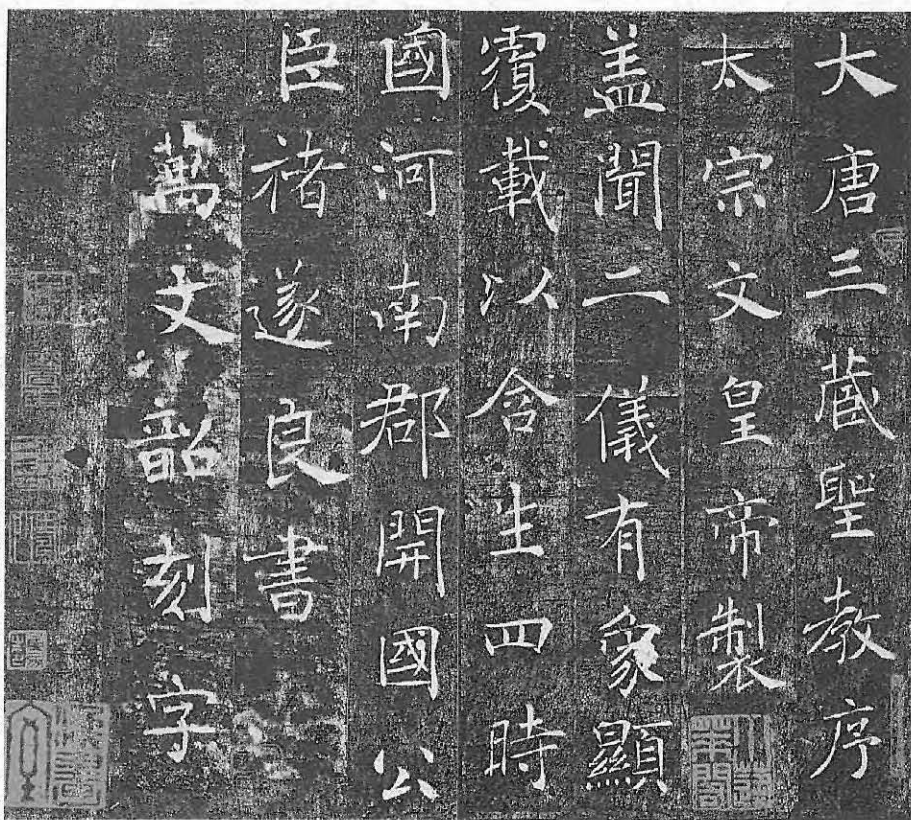 大唐三藏聖教序
太宗文皇帝製
盖聞二儀有象顯
覆載以含生四時
國河南郡開國公
臣褚遂良書
萬文韶刻字